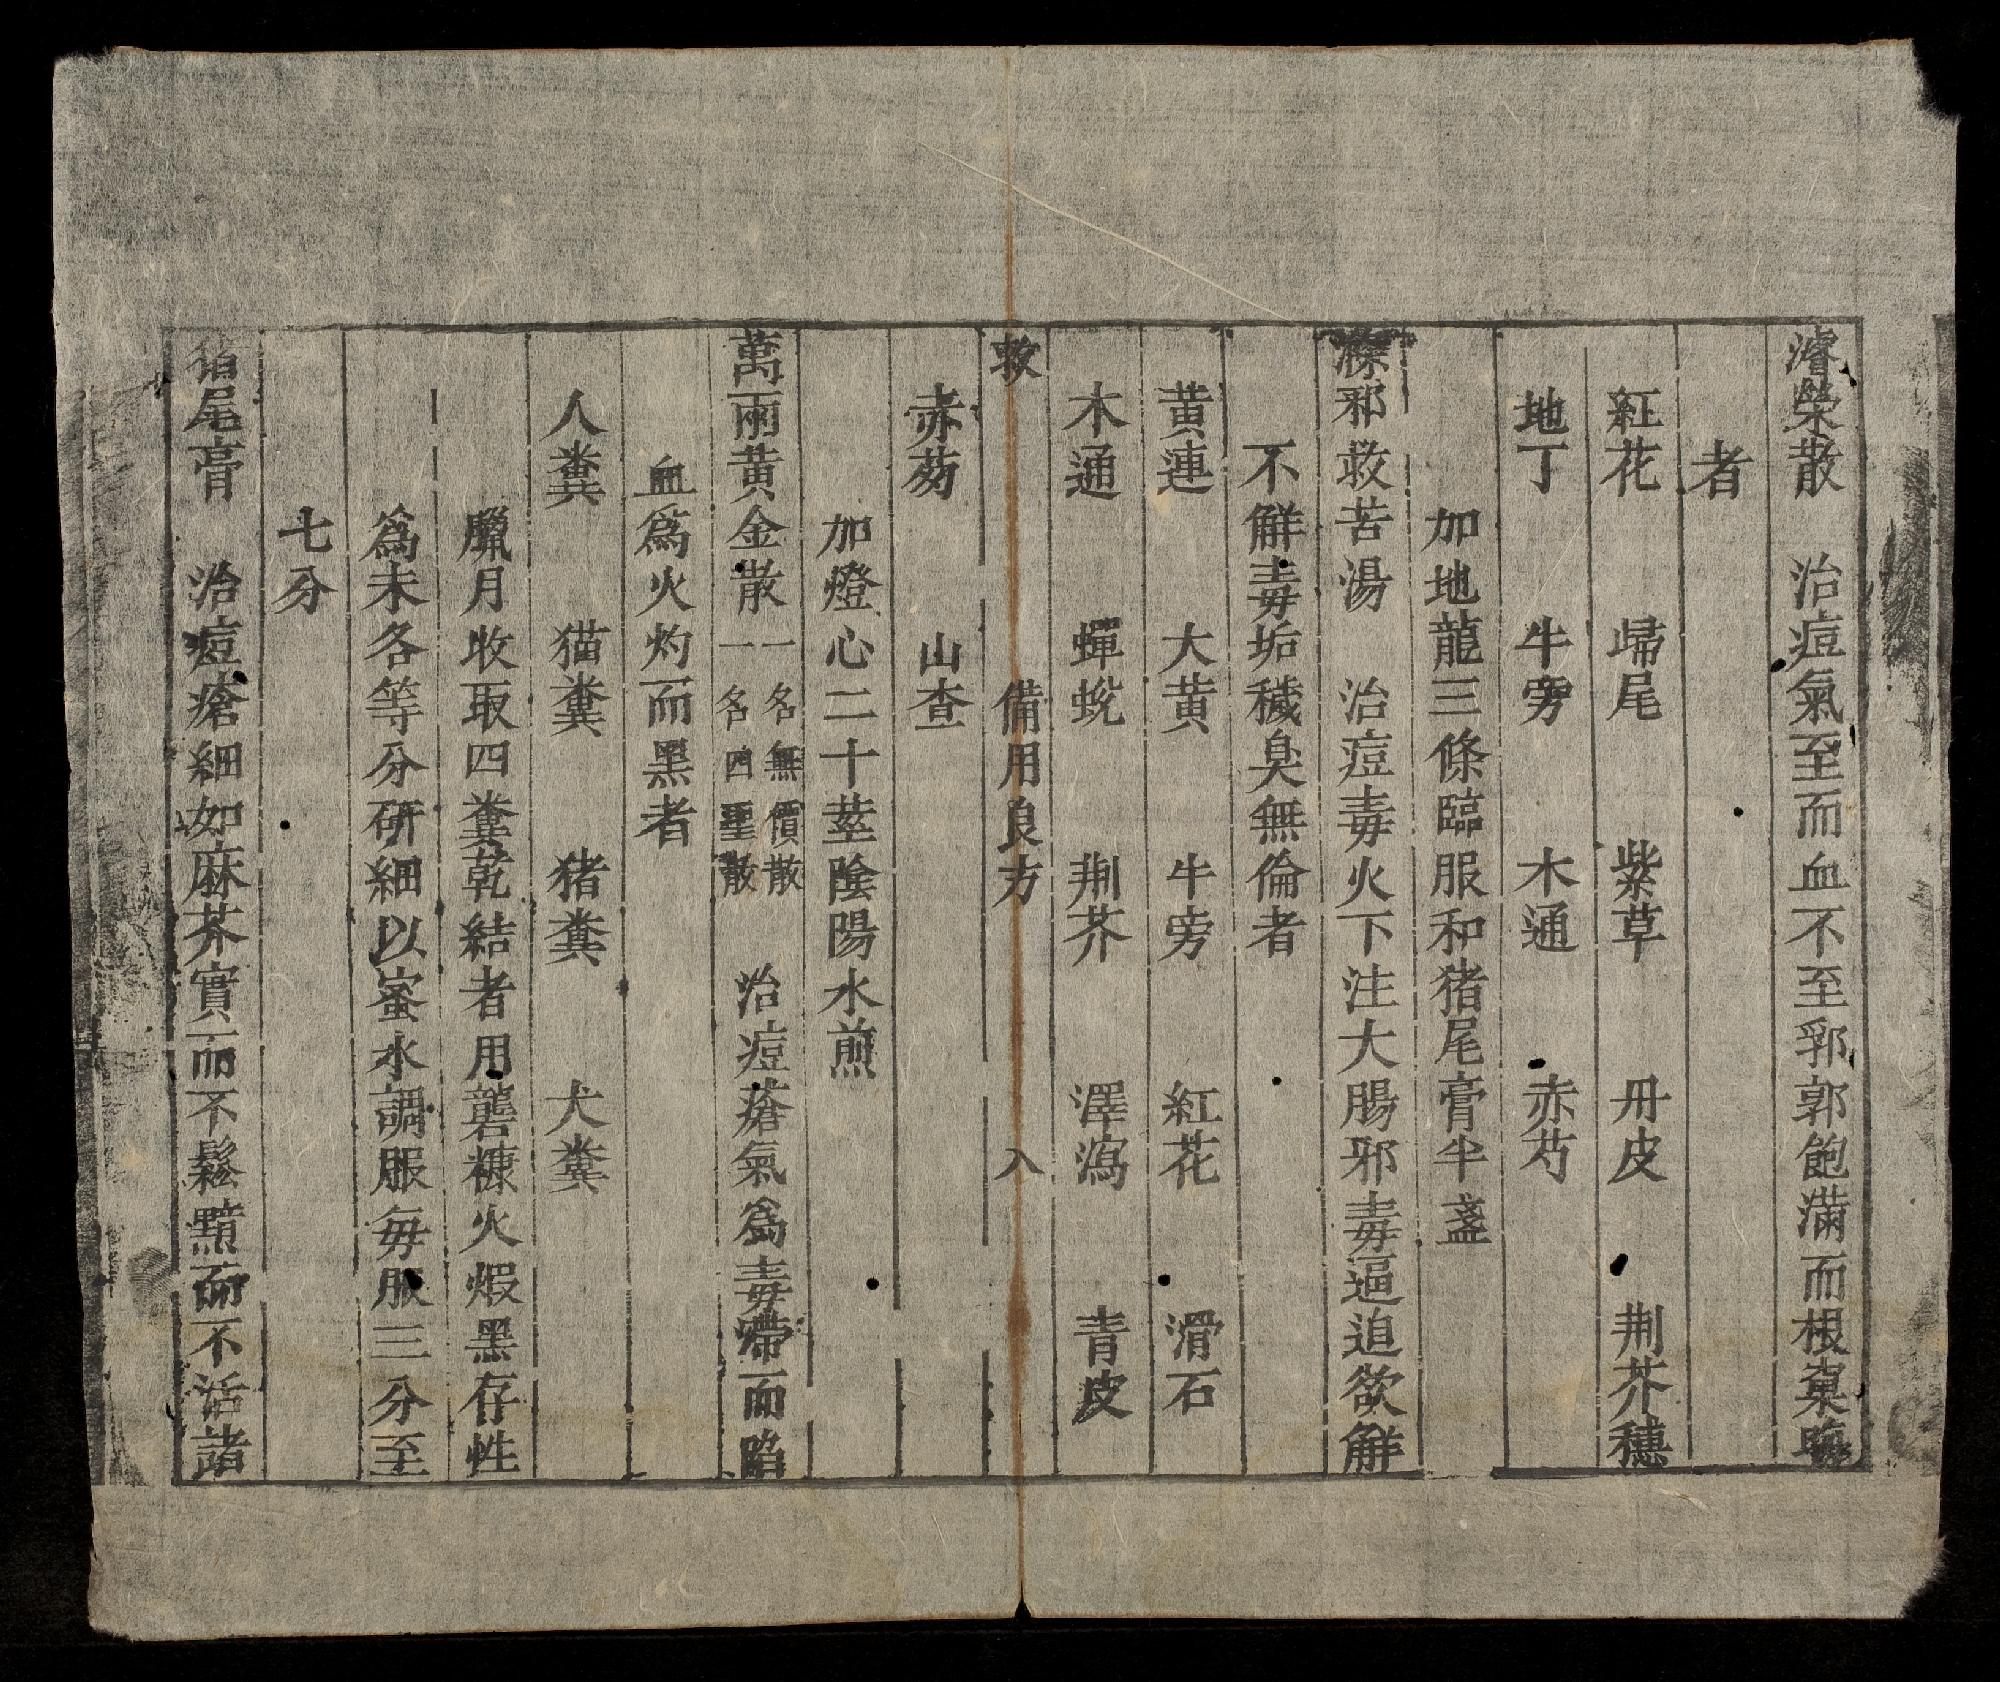 濬榮散　治痘氣至而血不至郛郭飽滿而根窠
者
紅花　歸尾　紫草　丹皮　荆芥穗
地丁　牛旁　木通　赤芍
加地龍三條臨服和猪尾膏半盞
邪救苦湯　治痘毒火下注大腸邪毒逼迫欲解
不解毒垢穢臭無倫者
黄連　大黄　牛旁　紅花　滑石
木通　蟬蛻　荆芥　澤瀉　青皮
救　備用良方　八
赤芍　山査
加燈心二十莖陰陽水煎
萬兩黄金散　一名無價散　一名四聖散　治痘瘡氣爲毒滯而陷
血爲火灼而黑者
人糞　猫糞　猪糞　犬糞
臘月收取四糞乾結者用礱糠火煅黑存性
爲末各等分研細以蜜水調服每服三分至
七分
猪尾膏　治痘瘡細如麻芥實而不鬆黯而不活諸